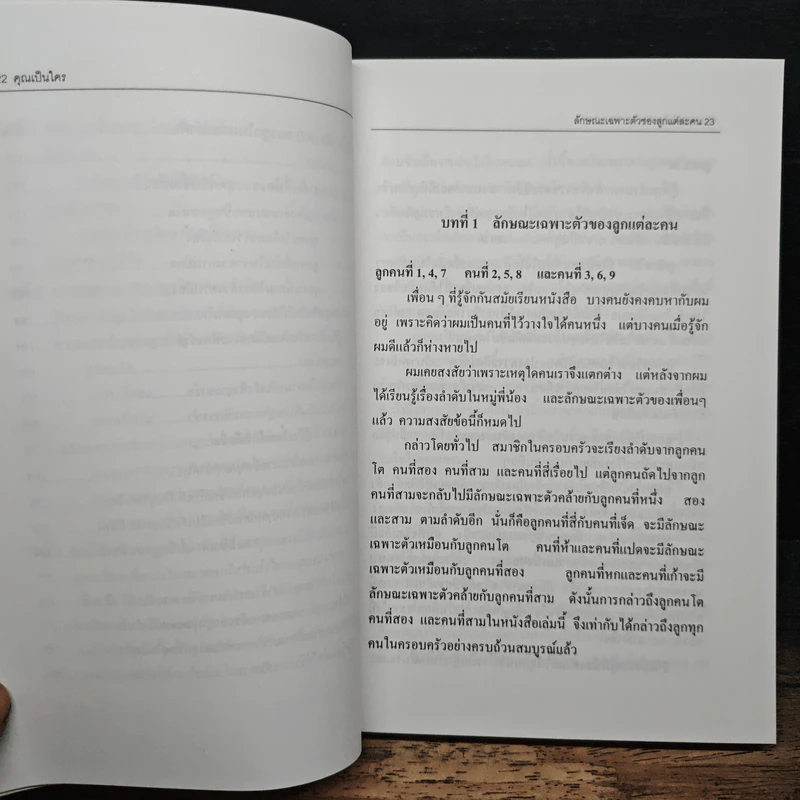 22 คุณเป็นใคร
ลักษณะเฉพาะตัวของลูกแต่ละคน 23
บทที่ 1 ลักษณะเฉพาะตัวของลูกแต่ละคน
ลูกคนที่ 1, 4, 7 คนที่ 2, 5, 8 และคนที่ 3, 6, 9
เพื่อน ๆ ที่รู้จักกันสมัยเรียนหนังสือ บางคนยังคงคบหากับผม
อยู่ เพราะคิดว่าผมเป็นคนที่ไว้วางใจได้คนหนึ่ง แต่บางคนเมื่อรู้จัก
ผมดีแล้วก็ห่างหายไป
ผมเคยสงสัยว่าเพราะเหตุใดคนเราจึงแตกต่าง แต่หลังจากผม
ได้เรียนรู้เรื่องลำดับในหมู่พี่น้อง และลักษณะเฉพาะตัวของเพื่อนๆ
แล้ว ความสงสัยข้อนี้ก็หมดไป
กล่าวโดยทั่วไป สมาชิกในครอบครัวจะเรียงลำดับจากลูกคน
โต คนที่สอง คนที่สาม และคนที่สี่เรื่อยไป แต่ลูกคนถัดไปจากลูก
คนที่สามจะกลับไปมีลักษณะเฉพาะตัวคล้ายกับลูกคนที่หนึ่ง สอง
และสาม ตามลำดับอีก นั่นก็คือลูกคนที่สี่กับคนที่เจ็ด จะมีลักษณะ
เฉพาะตัวเหมือนกับลูกคนโต คนที่ห้าและคนที่แปดจะมีลักษณะ
เฉพาะตัวเหมือนกับลูกคนที่สอง ลูกคนที่หกและคนที่เก้าจะมี
ลักษณะเฉพาะตัวคล้ายกับลูกคนที่สาม ดังนั้นการกล่าวถึงลูกคนโต
คนที่สอง และคนที่สามในหนังสือเล่มนี้ จึงเท่ากับได้กล่าวถึงลูกทุก
คนในครอบครัวอย่างครบถ้วนสมบูรณ์แล้ว